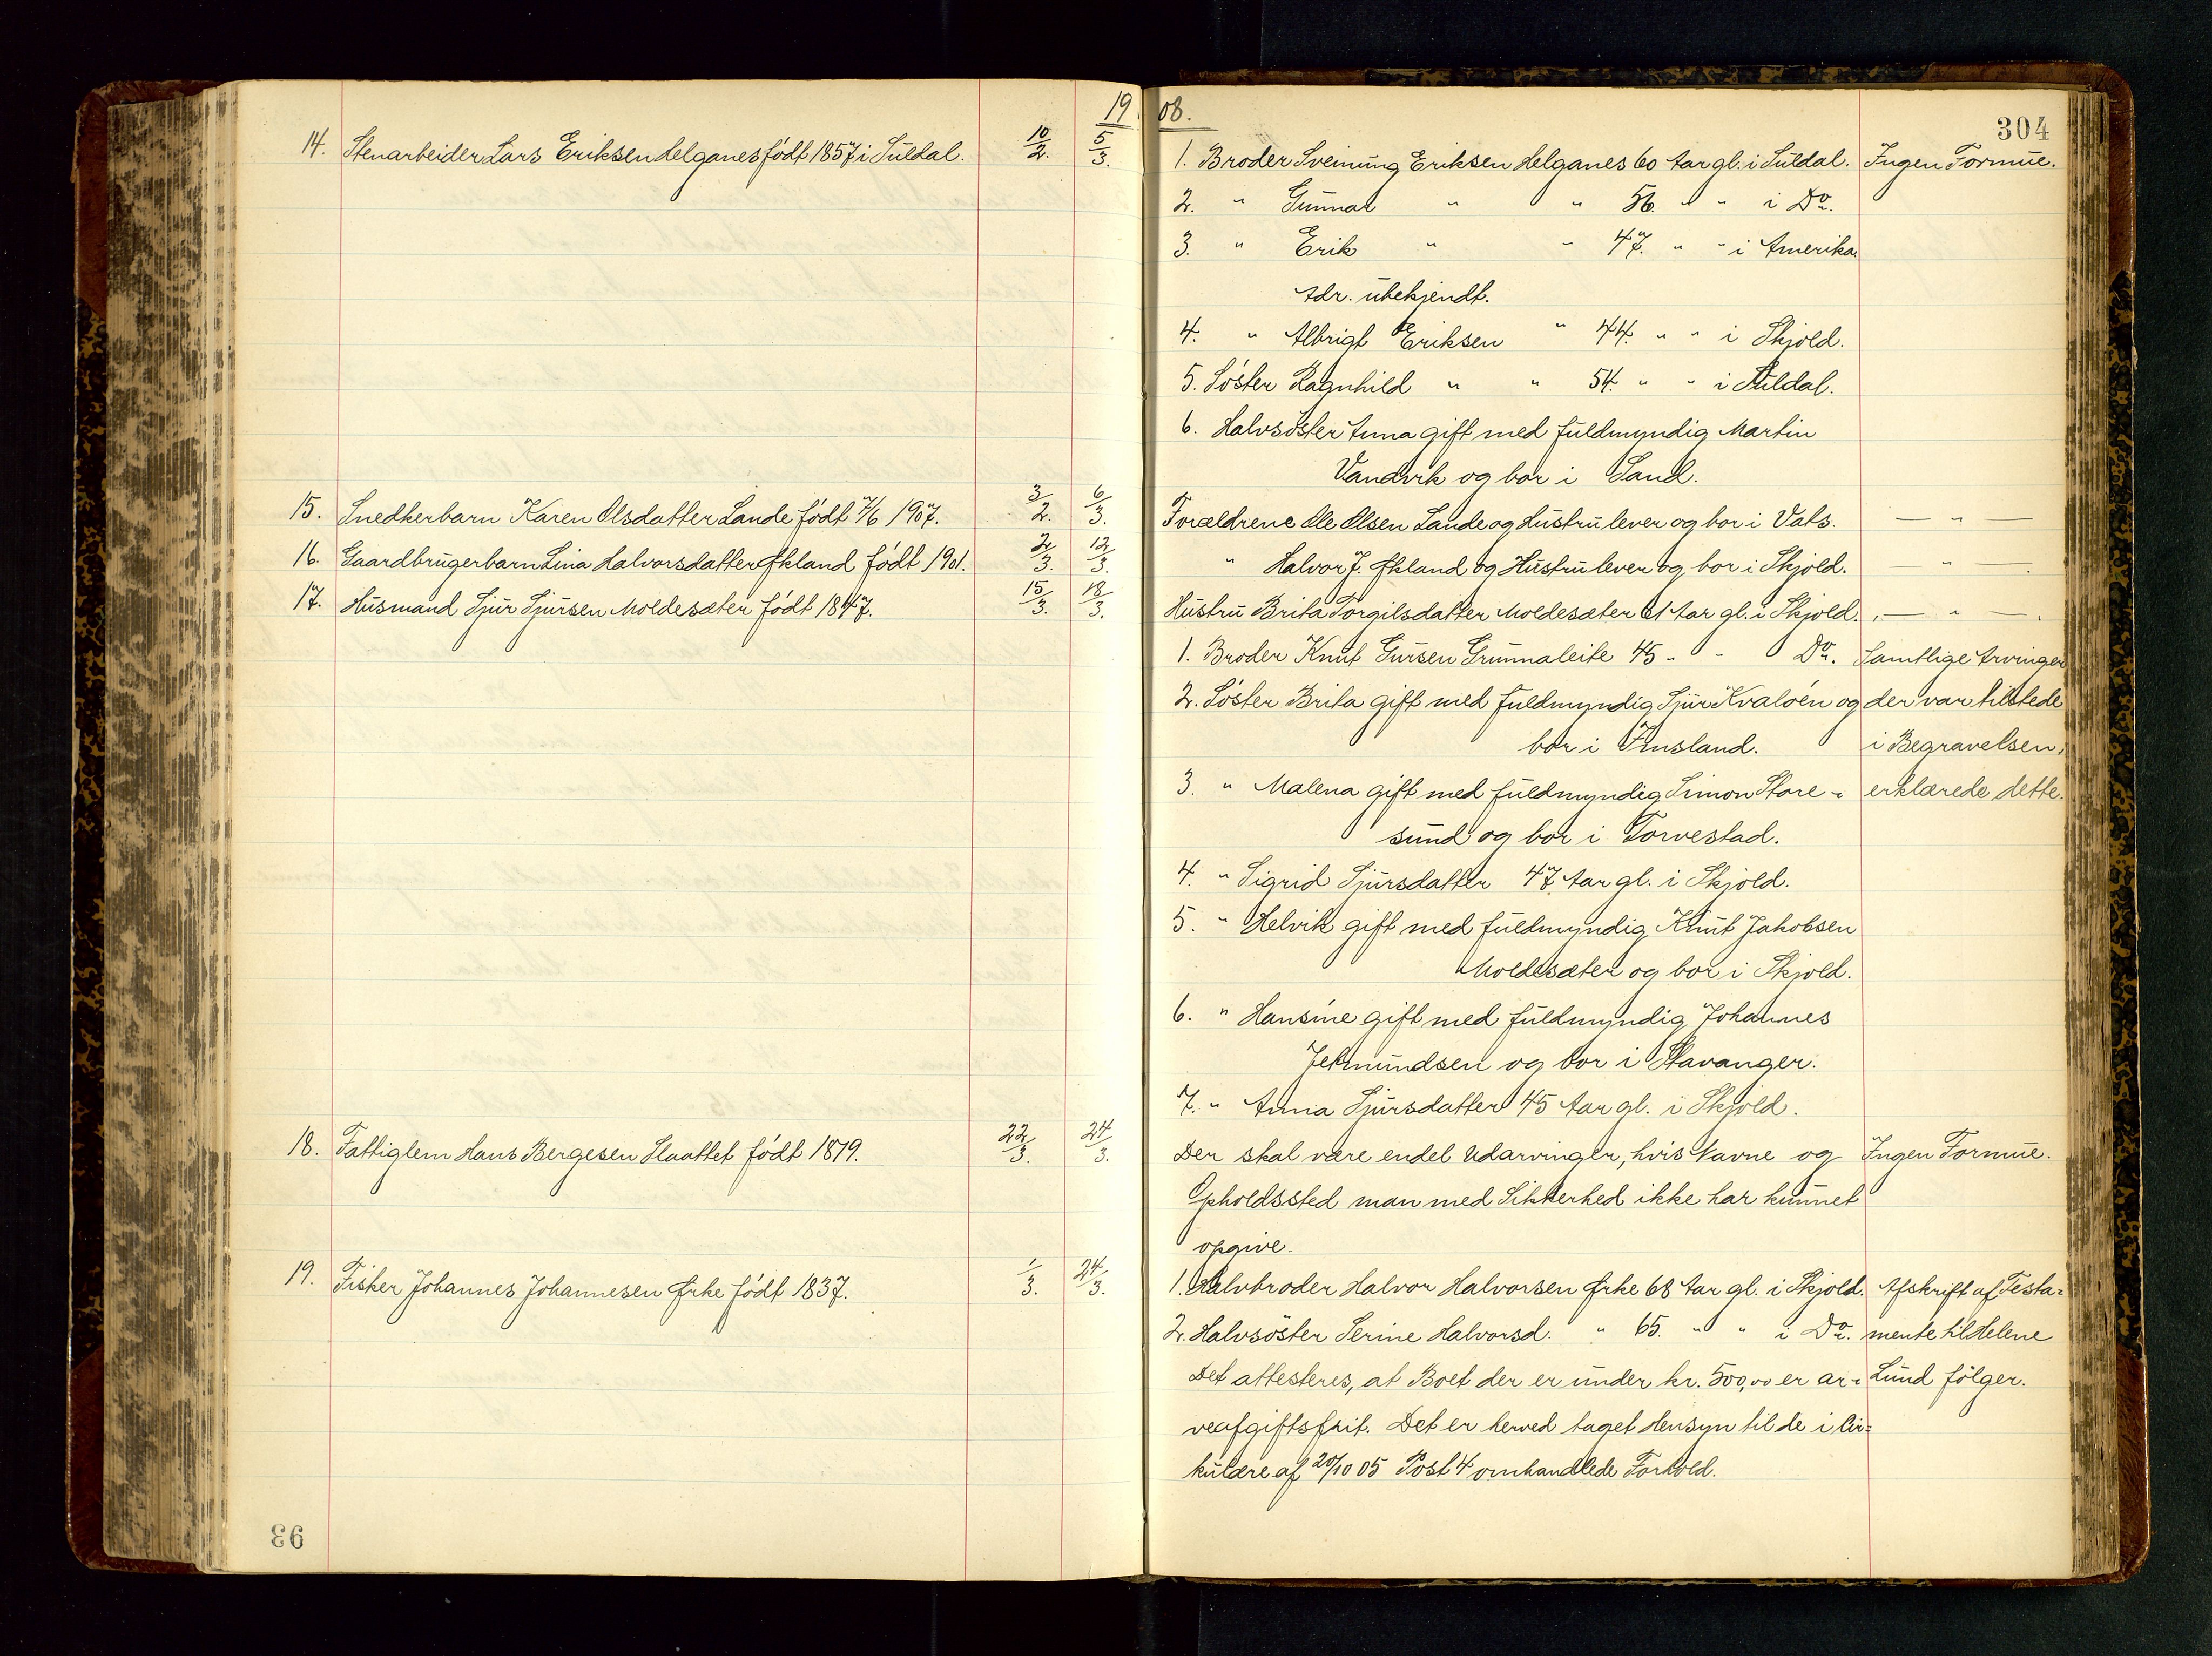 19 08.
304
14. Stenarbeider Lars Eriksen Helganes født 1857 i Suldal. 10/2. 5/3.
1. Broder Sveinung Eriksen Helganes 60 Aar gl. i Suldal. Ingen Formue.
2. " Gunnar " " 56. " " i Do.
3. " Erik " " 47. " " i Amerika
Adr. ubekjendt.
4. " Albrigt Eriksen " 44. " " i Skjold.
5. Søster Ragnhild " " 54. " " i Suldal.
6. Halvsøster Anna gift med fuldmyndig Martin
Vandvik og bor i Sand.
15. Snedkerbarn Karen Olsdatter Lande født 7/6 1907. 3/2. 6/3.
Forældrene Ole Olsen Lande og Hustru lever og bor i Vats. — " —
16. Gaardbrugerbarn Lina Halvorsdatter Økland født 1901. 2/3. 12/3.
" Halvor J. Økland og Hustru lever og bor i Skjold. — " —.
17. Husmand Sjur Sjursen Moldesæter født 1847. 15/3. 18/3.
Hustru Brita Torgilsdatter Moldesæter 61 Aar gl. i Skjold. — " —.
1. Broder Knut Sjursen Grunnaleite 45 " " Do. Samtlige Arvinger
2. Søster Brita gift med fuldmyndig Sjur Kvaløen og der var tilstede
bor i Imsland. i Begravelsen,
3. " Malena gift med fuldmyndig Simon Store- erklærede dette.
sund og bor i Torvestad.
4. " Sigrid Sjursdatter 47 Aar gl. i Skjold.
5. " Helvik gift med fuldmyndig Knut Jakobsen
Moldesæter og bor i Skjold.
6. " Hansine gift med fuldmyndig Johannes
Jetmundsen og bor i Stavanger.
7. " Anna Sjursdatter 45 Aar gl. i Skjold.
18. Fattiglem Hans Bergesen Slaattet født 1819. 22/3. 24/3.
Der skal være endel Udarvinger, hvis Navne og Ingen Formue.
Opholdssted man med Sikkerhed ikke har kunnet
opgive.
19. Fisker Johannes Johannesen Ørke født 1837. 1/3. 24/3.
1. Halvbroder Halvor Halvorsen Ørke 68 Aar gl. i Skjold. Afskrift af Testa=
2. Halvsøster Serine Halvorsd. " 65. " " i Do. mente til Helene
Det attesteres, at Boet der er under kr. 500,00 er ar- Lund følger.
veafgiftsfrit. Det er herved taget Hensyn til de i Cir=
kulære af 20/10 05 Post 4 omhandlede Forhold.
93